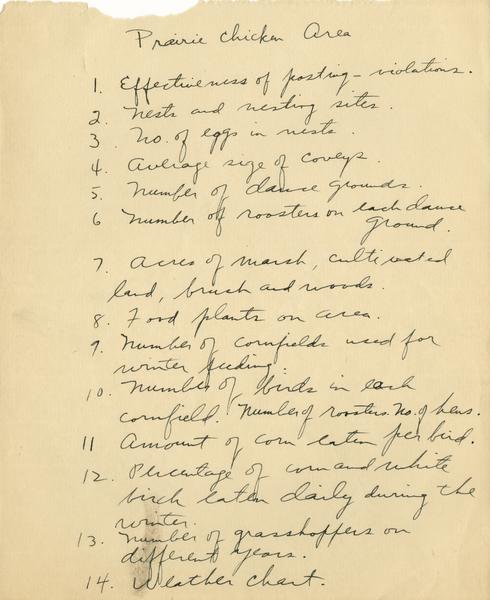 Prairie Chicken Area
1. Effectiveness of posting - violations.
2. Nests and nesting sites.
3. No. of eggs in nests.
4. Average size of coveys.
5. Number of dance grounds.
6 Number of roosters on each dance
ground.
7. Acres of marsh, cultivated
land, brush and woods.
8. Food plants on area.
9. Number of cornfields used for
winter feeding.
10. Number of birds in each
cornfield. Number of roosters. No. of hens.
11 Amount of corn eaten per bird.
12. Percentage of corn and white
birch eaten daily during the
winter.
13. Number of grasshoppers on
different years.
14. Weather chart.